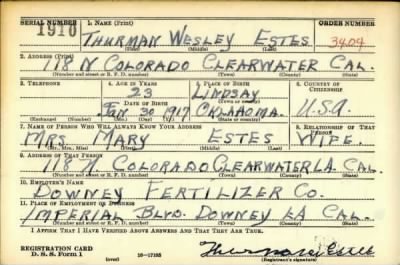 SERIAL NUMBER 1. NAME (Print) ORDER NUMBER
1910 THURMAN WESLEY ESTES 3404
(First) (Middle) (Last)
2. ADDRESS (Print)
118 N COLORADO CLEARWATER CAL.
(Number and street or R. F. D. number) (Town) (County) (State)
3. TELEPHONE 4. AGE IN YEARS 5. PLACE OF BIRTH 6. COUNTRY OF CITIZENSHIP
23 LINDSAY
DATE OF BIRTH (Town or county)
JAN 30 1917 OKLAHOMA. U.S.A.
(Exchange) (Number) (Mo.) (Day) (Yr.) (State or country)
7. NAME OF PERSON WHO WILL ALWAYS KNOW YOUR ADDRESS 8. RELATIONSHIP OF THAT PERSON
MRS MARY ESTES WIFE.
(Mr., Mrs., Miss) (First) (Middle) (Last)
9. ADDRESS OF THAT PERSON
118 N COLORADO CLEARWATER LA. CAL.
(Number and street or R. F. D. number) (Town) (County) (State)
10. EMPLOYER'S NAME
DOWNEY FERTILIZER CO.
11. PLACE OF EMPLOYMENT OR BUSINESS
IMPERIAL BLVD. DOWNEY LA CAL.
(Number and street or R. F. D. number) (Town) (County) (State)
I AFFIRM THAT I HAVE VERIFIED ABOVE ANSWERS AND THAT THEY ARE TRUE.
REGISTRATION CARD
D. S. S. Form 1 (over) 16-17105 Thurman Estes
(Registrant's signature)